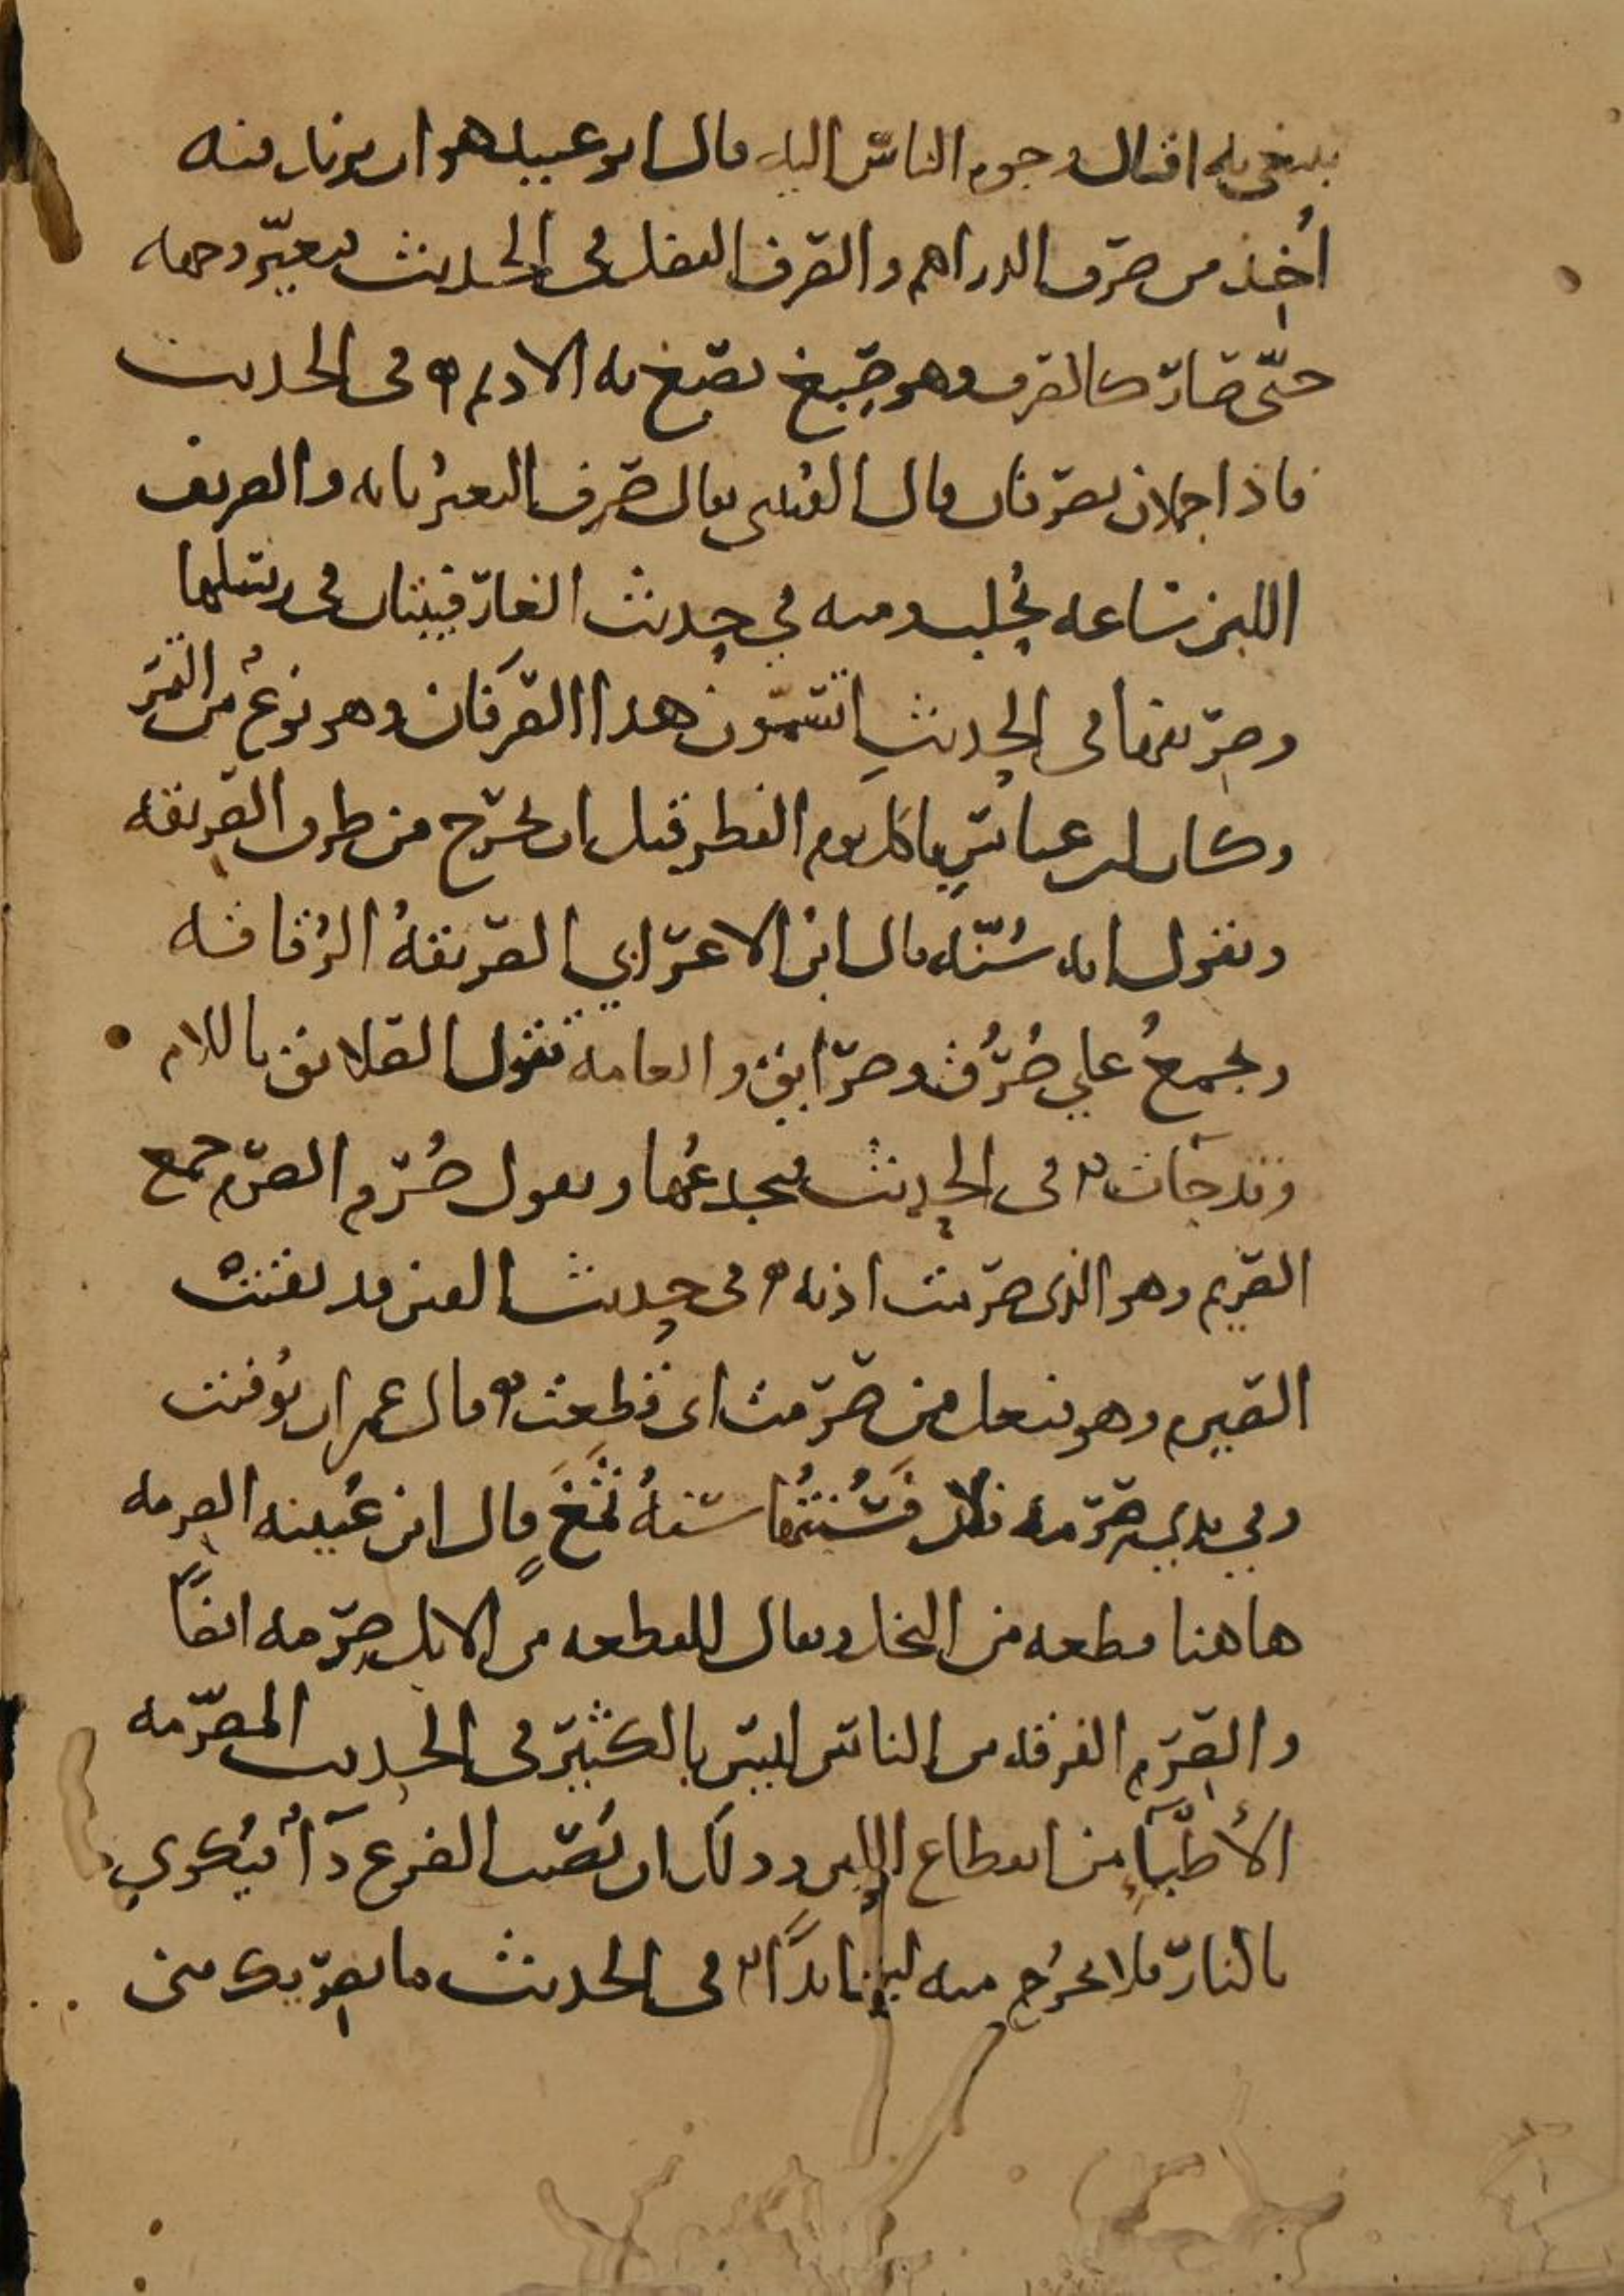 يبتغي به اقبال وجوه الناس اليه قال ابو عبيد هو ان يزداد فيه
اُخذ من صرف الدراهم والصرف الفضل في الحديث فتغيّر وجهه
حتّى صار كالصرف وهو صِبغ يصبغ به الاديم في الحديث
فاذا جملان يصرفان قال القتيبي يقال صرف البعير بنابه والصريف
اللبن ساعه يُحلب ومنه في حديث الغار فيبيتان في رسلها
وصريفها في الحديث اتسمون هذا الصَرَفان وهو نوعٌ من التمر
وكان ابن عباس ياكل يوم الفطر قبل ان يخرج من طرف الصريقه
ويقول انه سُنّه قال ابن الاعرابي الصريقهُ الرُقاقه
ويجمعُ علي صُرُق وصرايق والعامه تقول الصلايق باللام
في الحديث فيجدعُها ويقول صُرم الصرم جمع
الصريم وهو الذي صرمت اذنه في حديث
الصيرم وهو فيعل من صرمت اي قطعت قال عمر ان توفيت
وفي يدي صرمه فلان فسُنّتُها سنهُ ثَمْغَ قال ابن عُيينه الصرمه
هاهنا قطعه من النخل ويقال للقطعه من الابل صرمه ايضًا
والصرم الفرقه من الناس ليس بالكثير في الحديث المصرّمه
الأطباء من انقطاع اللبن وذلك ان يُصيب الضرع دآءٌ فيُكوي
بالنار فلا يخرُج منه لبن ابدًا في الحديث ما يصريك مني